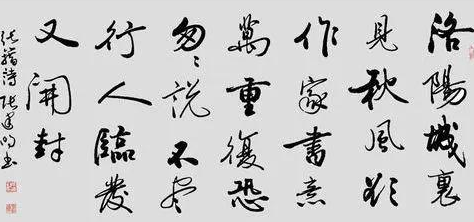 洛陽城裏
見秋風欲
作家書意
萬重復恐
匆匆説不尽
行人臨發
又開封
張籍詩 張 明書